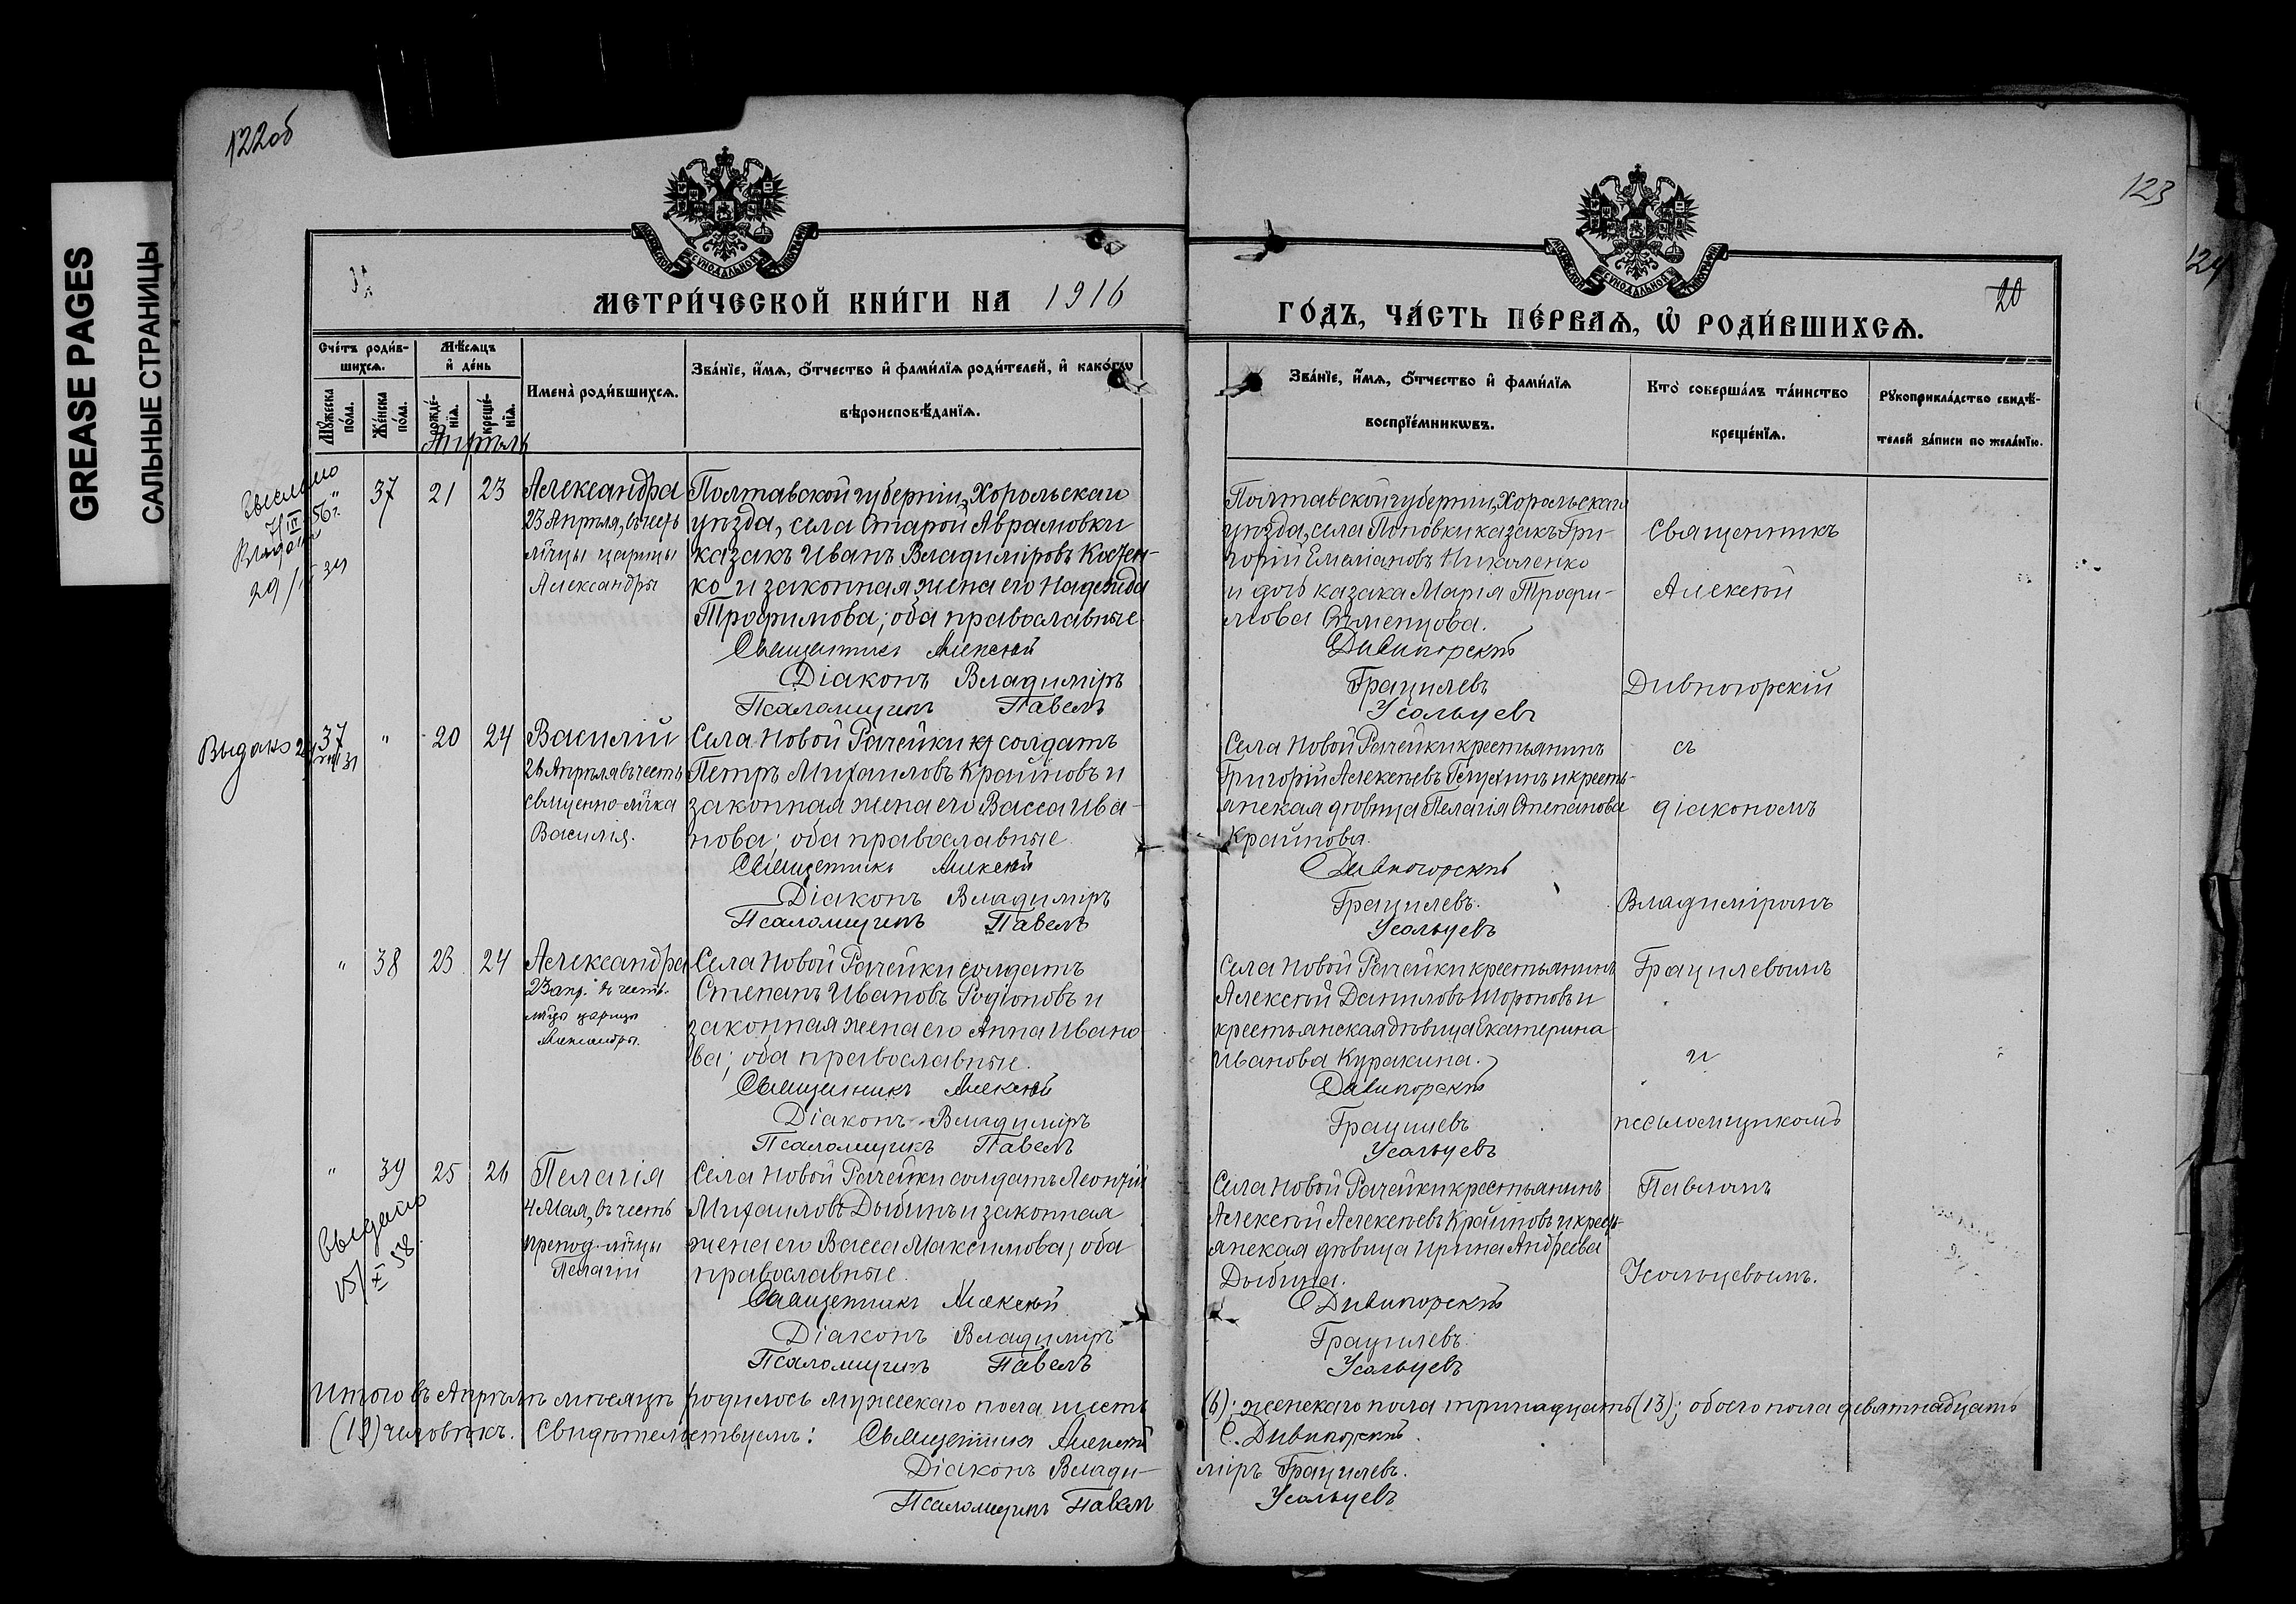 122об
123
124
GREASE PAGES
САЛЬНЫЕ СТРАНИЦЫ
МЕТРИ́ЧЕСКОЙ КНИ́ГИ НА 1916
ГО́ДЪ, ЧА́СТЬ ПЕ́РВАѦ, Ѡ РОДИ́ВШИХСѦ.
20
Сче́тъ роди́в-
шихсѧ.
Мѣ́сѧцъ
и҆ де́нь
Мꙋ́жеска пола.
Же́нска пола.
рожде́нїѧ.
креще́нїѧ.
Имена̀ роди́вшихсѧ.
Зва́нїе, и҆́мѧ, ѻ҆́тчество и҆ фами́лїѧ роди́телей, и҆ како́гѡ
вѣроисповѣ́данїѧ.
Зва́нїе, и҆́мѧ, ѻ҆́тчество и҆ фами́лїѧ
воспрїе́мникѡвъ.
Кто̀ соверша́лъ та́инство
креще́нїѧ.
Рꙋкоприкла́дство свидѣ́-
телей за́писи по жела́нїю.
Апрѣль
37 21 23
Александра
23 Апрѣля, въ честь
мч҃цы царицы
Александры
Полтавской губерніи, Хорольскаго
уѣзда, села Старой Аврамовки
казакъ Иванъ Владиміровъ Костен-
ко и законная жена его Надежда
Трофимова; оба православные.
Священникъ Алексѣй
Діаконъ Владиміръ
Псаломщикъ Павелъ
Полтавской губерніи, Хорольскаго
уѣзда, села Поповки казакъ Гри-
горій Емеліановъ Николенко
и дочь казака Марія Трофи-
мова
Дивногорскій
Грацилевъ
Усольцевъ
Священникъ
Алексѣй
Дивногорскій
Выдано
37 " 20 24
Василій
26 Апрѣля въ честь
священно-мч҃ка
Василія.
Села Новой Рачейки кр солдатъ
Петръ Михаиловъ Крайновъ и
законная жена его Васса Ива-
нова; оба православные.
Священникъ Алексѣй
Діаконъ Владиміръ
Псаломщикъ Павелъ
Села Новой Рачейки крестьянинъ
Григорій Алексѣевъ и кресть-
янская дѣвица Пелагія Степанова
Крайнова.
Дивногорскій
Грацилевъ.
Усольцевъ
съ
діакономъ
Владиміромъ
" 38 23 24
Александра
23 апр. въ честь
мч҃цы царицы
Александры.
Села Новой Рачейки солдатъ
Степанъ Ивановъ Родіоновъ и
законная жена его Анна Ивано-
ва; оба православные.
Священникъ Алексѣй
Діаконъ Владиміръ
Псаломщикъ Павелъ
Села Новой Рачейки крестьянинъ
Алексѣй Даниловъ Шороповъ и
крестьянская дѣвица Екатерина
Иванова Куракина.
Дивногорскій
Грацилевъ
Усольцевъ
Грацилевымъ
и
псаломщикомъ
" 39 25 26
Выдано
15/X 58.
Пелагія
4 Мая, въ честь
препод. мч҃цы
Пелагіи
Села Новой Рачейки солдатъ Леонтій
Михаиловъ Дыбинъ и законная
жена его Васса Максимова; оба
православные.
Священникъ Алексѣй
Діаконъ Владиміръ
Псаломщикъ Павелъ
Села Новой Рачейки крестьянинъ
Алексѣй Алексѣевъ Крайновъ и кресть-
янская дѣвица Ирина Андреева
Дыбина.
Дивногорскій
Грацилевъ.
Усольцевъ
Павломъ
Усольцевымъ.
Итого въ Апрѣлѣ мѣсяцѣ родилось мужескаго пола шесть (6); женскаго пола тринадцать (13); обоего пола девятнадцать
(19) человѣкъ. Свидѣтельствуемъ: Священникъ Алексѣй С. Дивногорскій.
Діаконъ Влади-міръ Грацилевъ.
Псаломщикъ Павелъ Усольцевъ